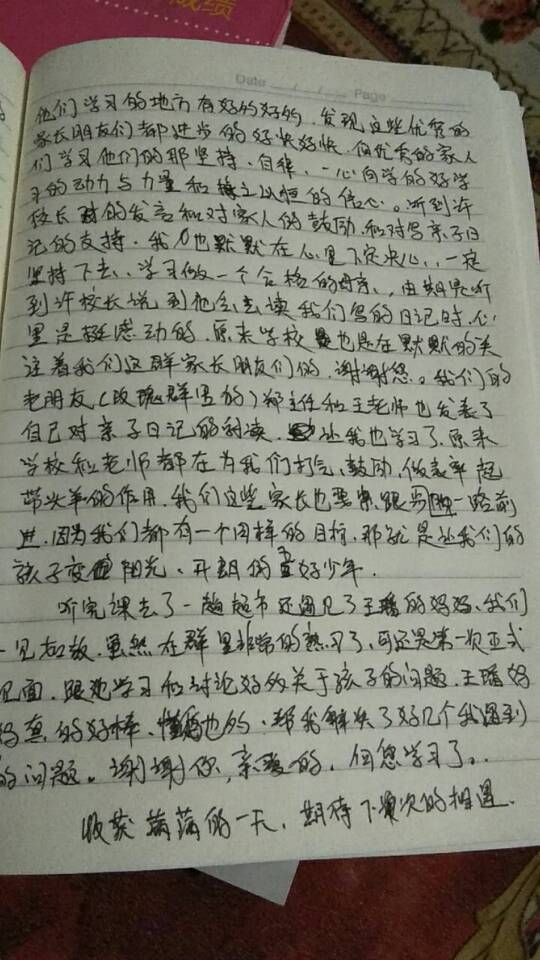 成绩
Date / / Page
他们学习的地方有好的好的，发现这些优秀的
家长朋友们都进步的好快好快，向优秀的家人
们学习他们的那坚持、自律、一心向学的好学
习的动力与力量和持之以恒的信心。听到许
校长对的发言和对家人的鼓励，和对写亲子日
记的支持，我也默默在心里下定决心，一定
坚持下去，学习做一个合格的母亲，尤其是听
到许校长说到他会去读我们写的日记时，心
里是挺感动的，原来学校也是在默默的关
注着我们这群家长朋友们的，谢谢您。我们的
老朋友（玫瑰群里的）郑主任和王老师也发表了
自己对亲子日记的解读，让我也学习了，原来
学校和老师都在为我们打气，鼓励，做表率起
带头羊的作用，我们这些家长也要紧跟一路前
进，因为我们都有一个同样的目标，那就是让我们的
孩子变阳光、开朗的好少年，
听完课去了一趟超市还遇见了王的妈妈，我们
一见如故，虽然在群里非常的熟习了，可还是第一次正式
见面，跟她学习和讨论好的关于孩子的问题，王妈
妈真的好棒，懂也的，帮我解决了好几个我遇到
的问题。谢谢你，亲爱的，向您学习了。
收获满满的一天，期待下次的相遇。